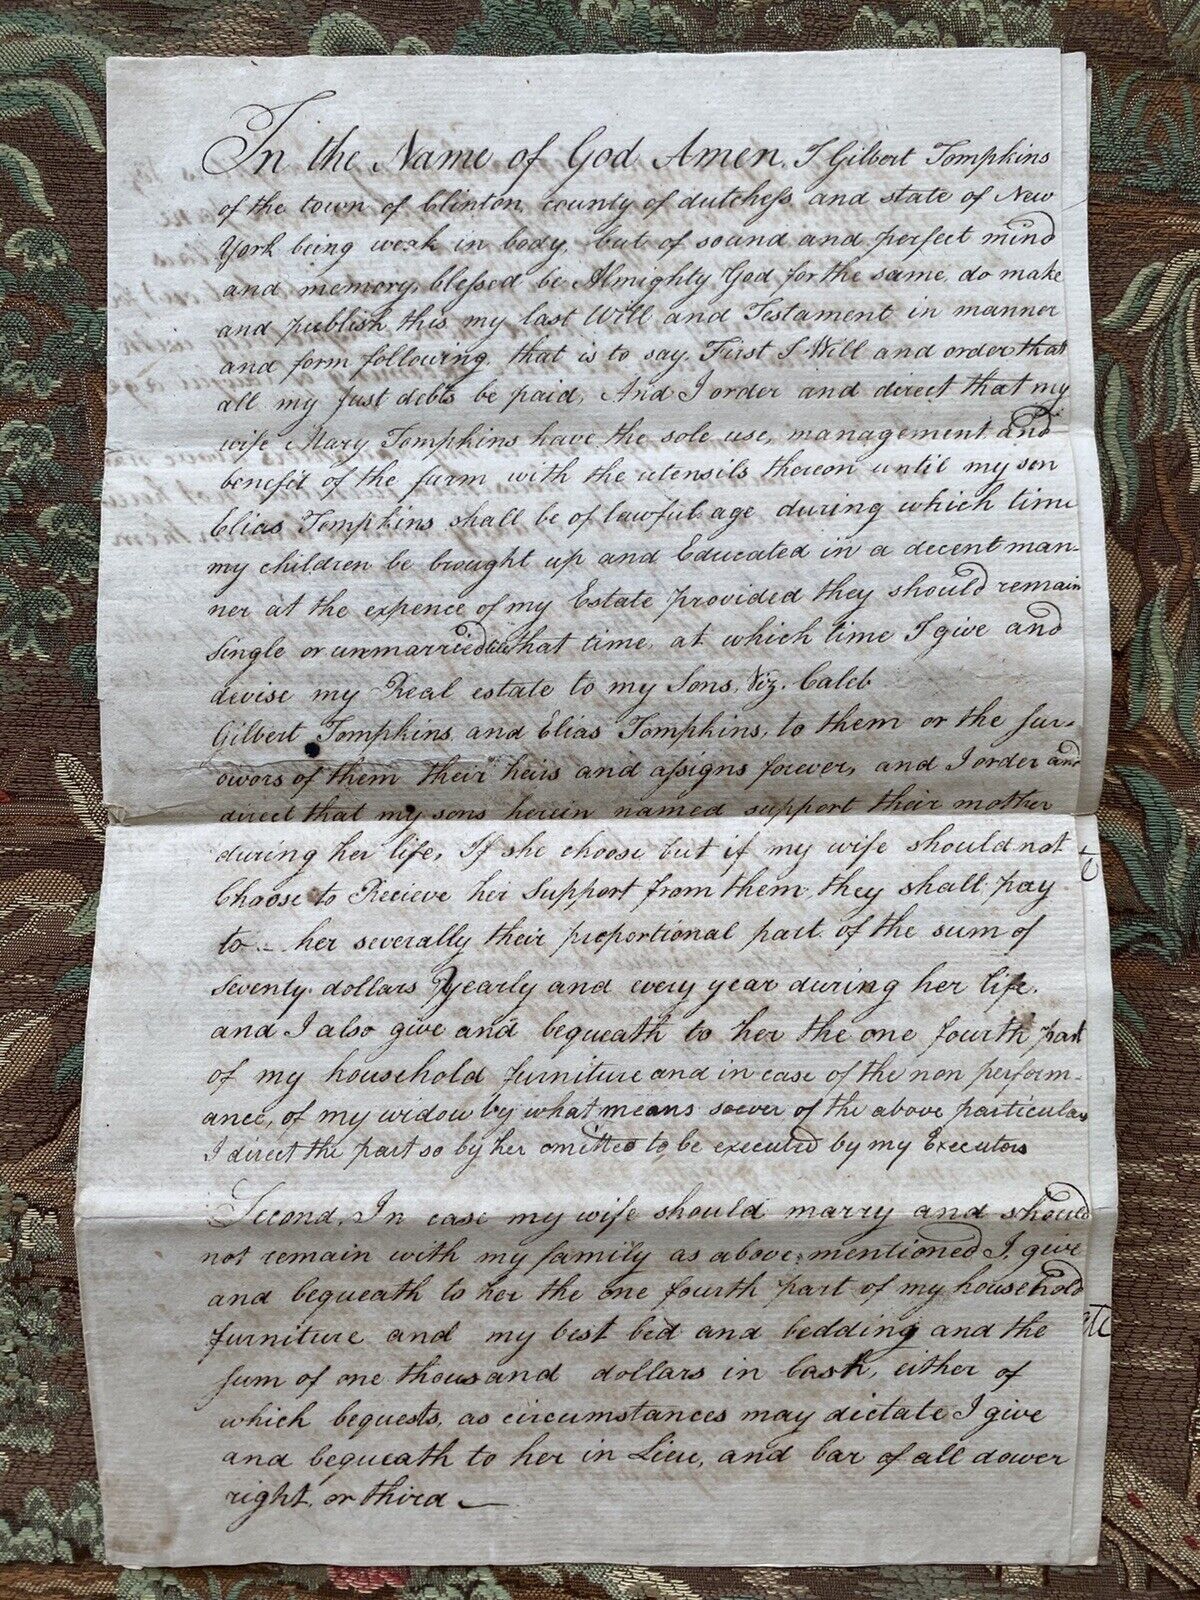 In the Name of God Amen. I Gilbert Tompkins
of the town of Clinton, county of dutchess and state of New
York being weak in body, but of sound and perfect mind
and memory, blessed be Almighty God for the same, do make
and publish this my last Will and Testament in manner
and form following, that is to say. First I Will and order that
all my just debts be paid, And I order and direct that my
wife Mary Tompkins have the sole use, management and
benefit of the farm with the utensils thereon until my son
Elias Tompkins shall be of lawful age during which time
my children be brought up and Educated in a decent man-
ner at the expence of my Estate provided they should remain
Single or unmarried till that time, at which time I give and
devise my Real estate to my Sons, Viz. Caleb
Gilbert Tompkins and Elias Tompkins, to them or the sur-
owors of them their heirs and assigns forever, and I order and
direct that my sons herein named support their mother
during her life, If she choose but if my wife should not
Choose to Recieve her Support from them, they shall pay
to - her severally their proportional part of the sum of
Seventy dollars Yearly and every year during her life.
and I also give and bequeath to her the one fourth part
of my household furniture and in case of the non perform-
ance, of my widow by what means soever of the above particulars
I direct the part so by her omitted to be executed by my Executors
Second, In case my wife should marry and should
not remain with my family as above mentioned I give
and bequeath to her the one fourth part of my household
furniture and my best bed and bedding and the
Sum of one thousand dollars in Cash, either of
which bequests, as circumstances may dictate I give
and bequeath to her in Lieu, and bar of all dower
right, or third